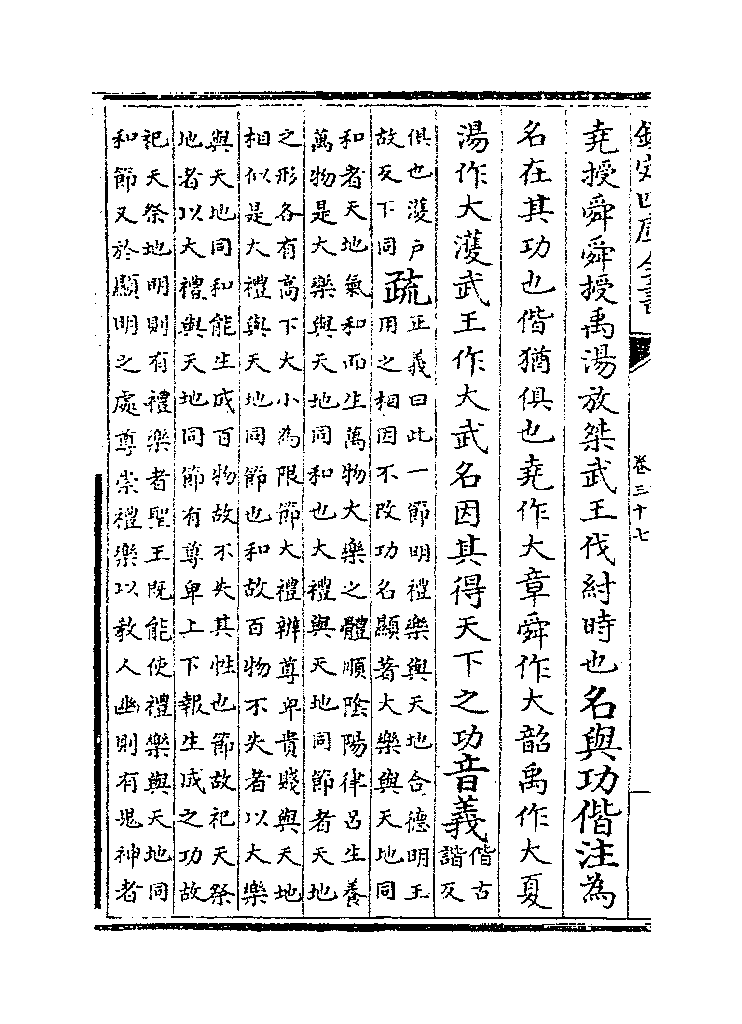 欽定四庫全書
卷三十七
堯授舜舜授禹湯放桀武王伐紂時也名與功偕注為
名在其功也偕猶俱也堯作大章舜作大韶禹作大夏
湯作大濩武王作大武名因其得天下之功音義
偕古
諧反
俱也濩戶
故反下同
疏
正義曰此一節明禮樂與天地合德明王
用之相因不改功名顯著大樂與天地同
和者天地氣和而生萬物大樂之體順陰陽律呂生養
萬物是大樂與天地同和也大禮與天地同節者天地
之形各有高下大小為限節大禮辨尊卑貴賤與天地
相似是大禮與天地同節也和故百物不失者以大樂
與天地同和能生成百物故不失其性也節故祀天祭
地者以大禮與天地同節有尊卑上下報生成之功故
祀天祭地明則有禮樂者聖王既能使禮樂與天地同
和節又於顯明之處尊崇禮樂以教人幽則有鬼神者